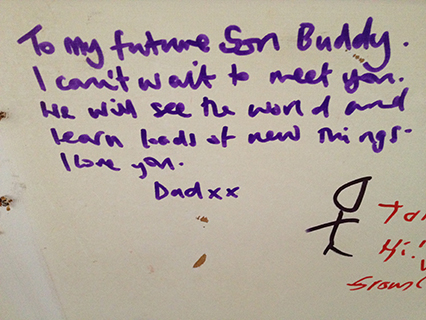 To my future Son Buddy.
I can't wait to meet you.
We will see the world and
learn loads of new things.
I love you.
Dad xx
Hi!